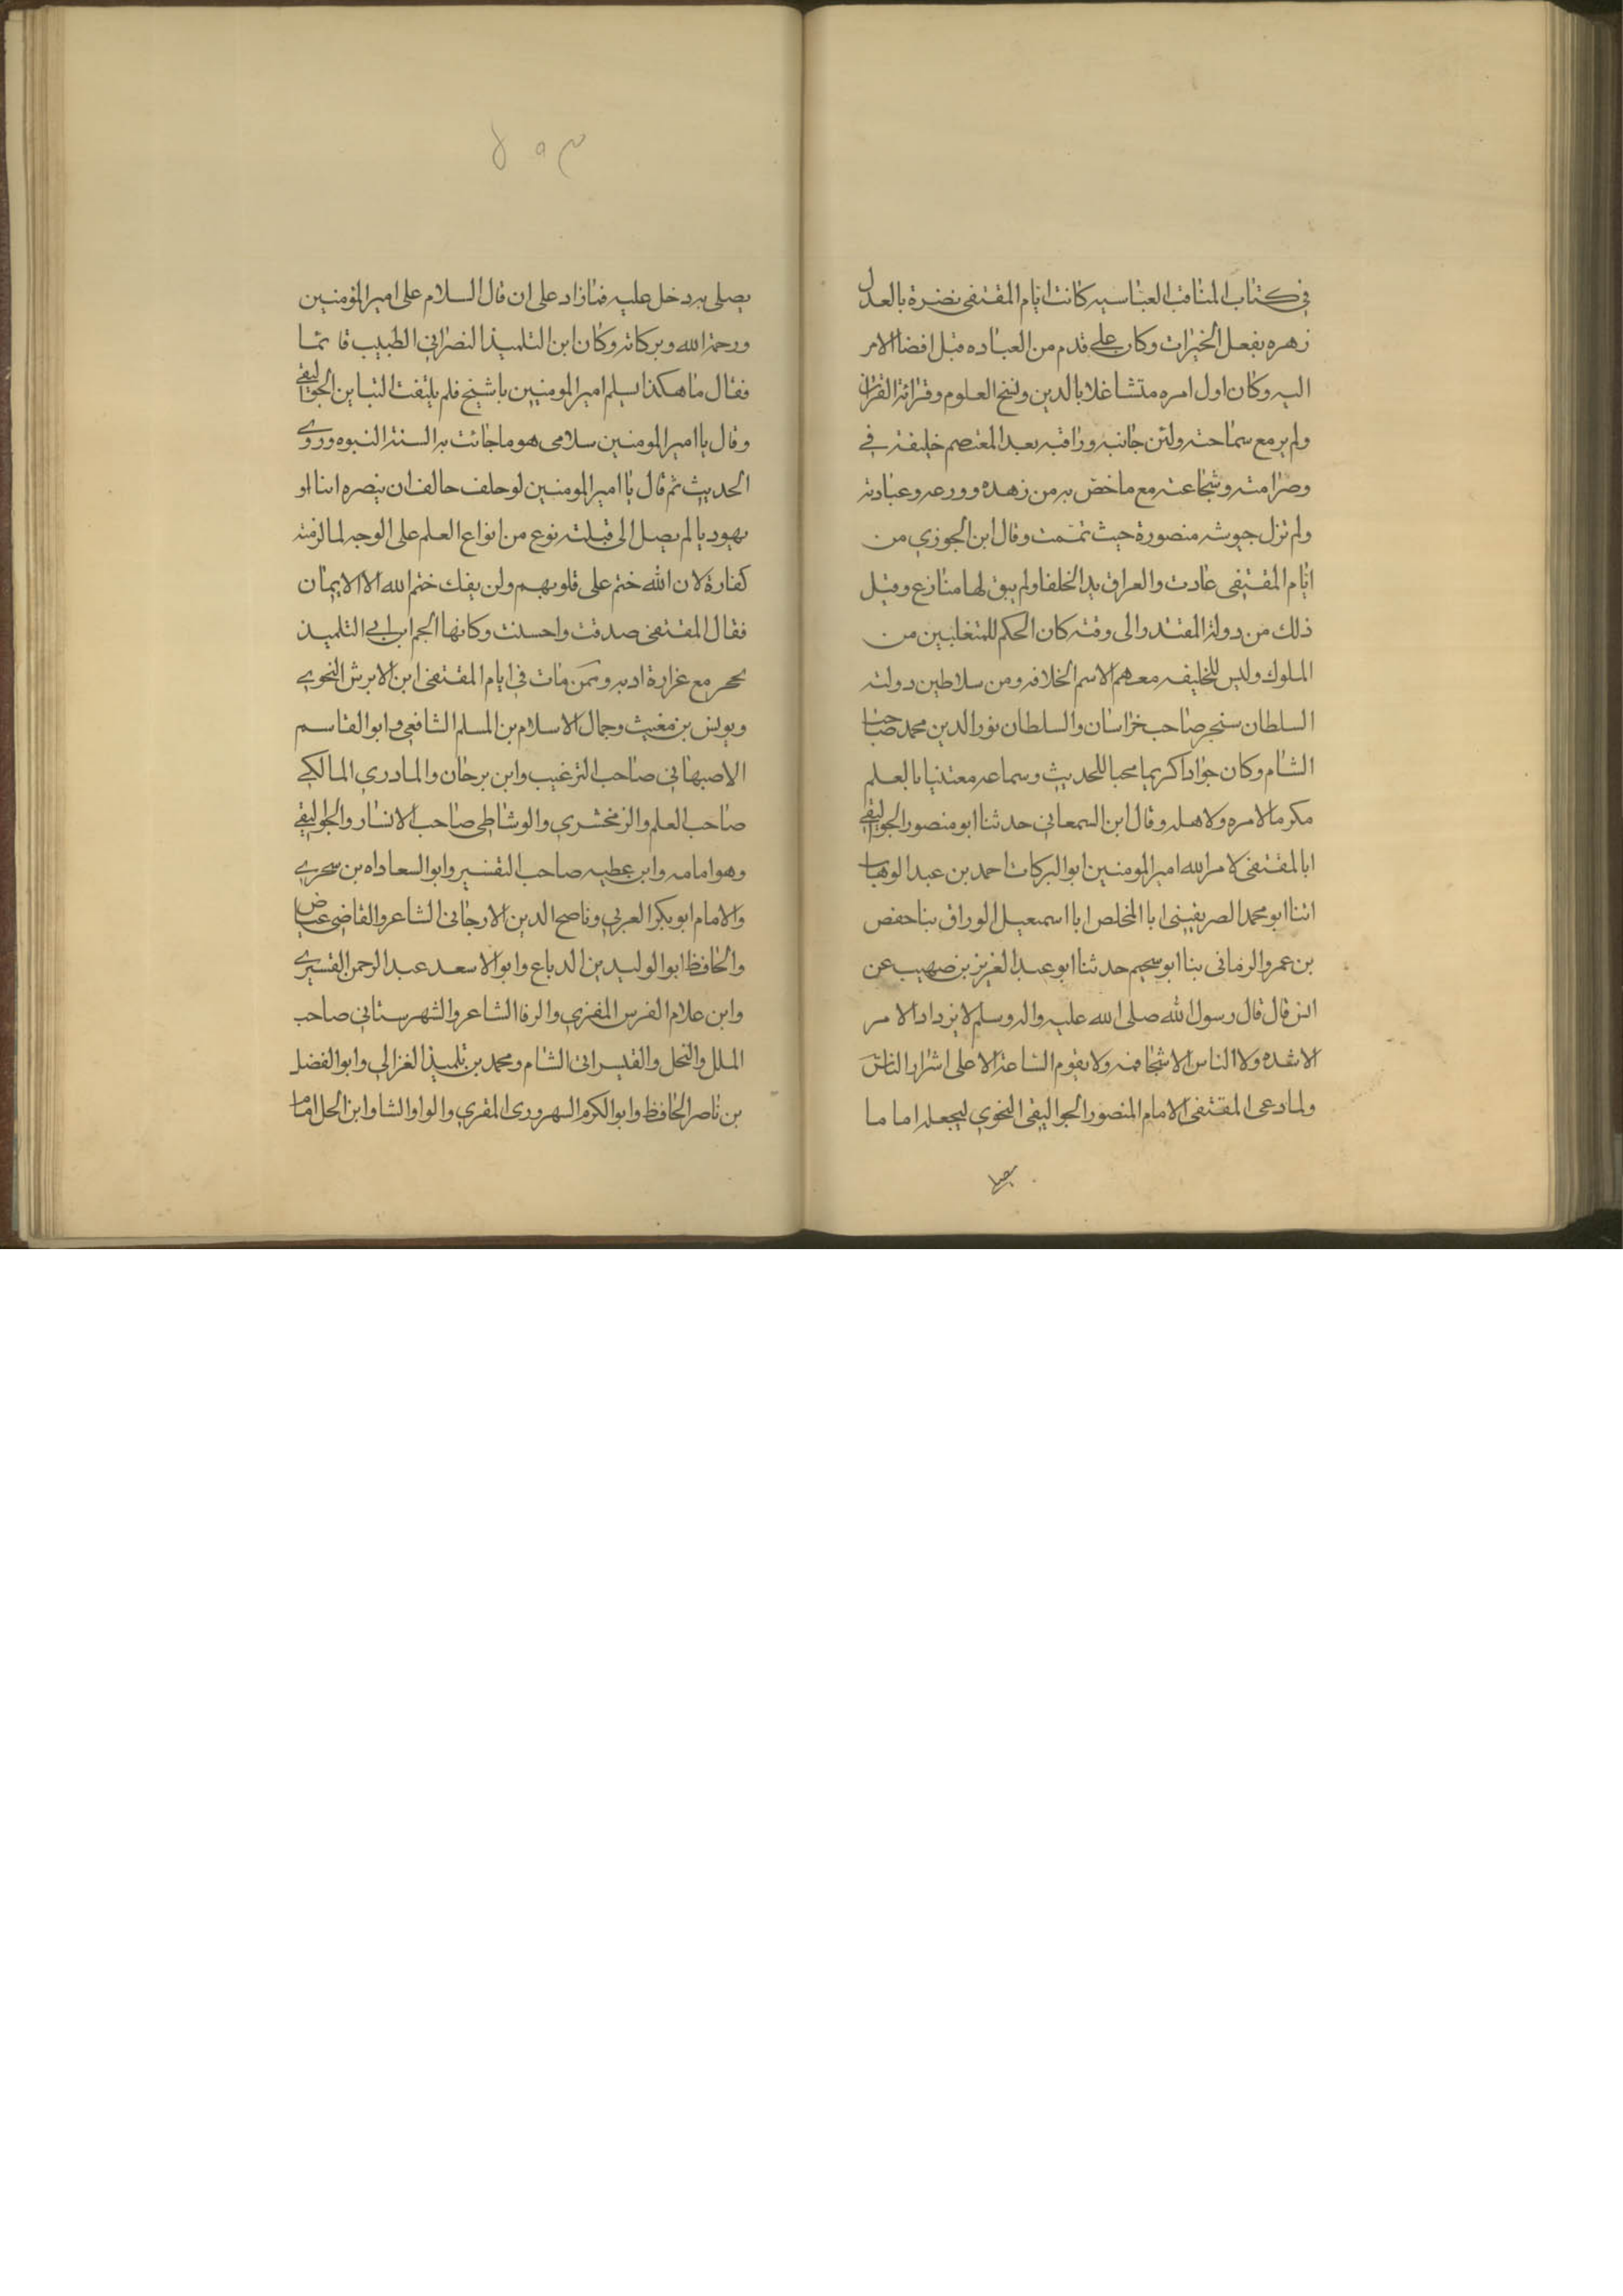 في كتاب المناقب العباسيه كانت ايام المقتفي نضرة بالعدل
زهره بفعل الخيرات وكان علي قدم من العباده قبل افضا الامر
اليه وكان اول امره متشاغلا بالدين ونسخ العلوم وقرائة القران
ولم ير مع سماحته ولين جانبه ورافته بعد المعتصم خليفة في
وصرامته وشجاعته مع ما خص به من زهده وورعه وعبادته
ولم تزل جيوشه منصورة حيث تممت وقال ابن الجوزي من
ايام المقتفي عادت والعراق بيد الخلفا ولم يبق لها منازع وقبل
ذلك من دولة المقتدر الى وقته كان الحكم للمتغلبين من
الملوك وليس للخليفه معهم الا اسم الخلافه ومن سلاطين دولته
السلطان سنجر صاحب خراسان والسلطان نور الدين محمد صاحب
الشام وكان جوادا كريما محبا للحديث وسماعه معتنيا بالعلم
مكرما لامره ولاهله وقال ابن السمعاني حدثنا ابو منصور الجواليقي
ابا المقتفي لامر الله امير المومنين ابو البركات احمد بن عبد الوهاب
اثنا ابو محمد الصريفيني ابا المخلص ابا اسمعيل الوراق بنا حفص
بن عمرو الرماني بنا ابو سحيم حدثنا ابو عبد العزيز بن صهيب عن
انس قال قال رسول الله صلى الله عليه واله وسلم لا يزداد الامر
الا شده ولا الناس الا شحا فمنه ولا يقوم الساعة الا على اشرار الناس
ولما دعى المقتفي الامام المنصور الجواليقي النحوي ليجعله اماما
يصلي به دخل عليه فما زاد على ان قال السلام على امير المؤمنين
ورحمة الله وبركاته وكان ابن التلميذ النصراني الطبيب قائما
فقال ما هكذا يسلم امير المومنين يا شيخ فلم يلتفت ابن الجواليقي
وقال يا امير المومنين سلامي هو ما جائت به السنة النبوه وروى
الحديث ثم قال يا امير المومنين لو حلف حالف ان نصره انيا او
يهوديا لم يصل الى قبلته نوع من انواع العلم على الوجه لما لزمته
كفارة لان الله ختم على قلوبهم ولن يفك ختم الله الا الايمان
فقال المقتفي صدقت واحسنت وكانها الجم ابن ابي التلميذ
بحجر مع غزارة ادبه وممن مات في ايام المقتفي ابن الابرش النحوي
ويونس بن مغيث وجمال الاسلام بن المسلم الشافعي وابو القاسم
الاصبهاني صاحب الترغيب وابن برجان والمادري المالكي
صاحب العلم والزمخشري والوشاطي صاحب الانسار والجواليقي
وهو امامه وابن عطيه صاحب التفسير وابو السعاداه بن سحري
والامام ابو بكر العربي وناصح الدين الارجاني الشاعر والقاضي عياض
والحافظ ابو الوليد بن الدباع وابو الاسعد عبد الرحمن القسيري
وابن علام الفرس المقري والرفا الشاعر والشهرستاني صاحب
الملل والنحل والقيسراني الشام ومحمد بن تلميذ الغزالي وابو الفضل
بن ناصر الحافظ وابو الكرم السهروردي المقري والواوا الشا وابن الحل امام